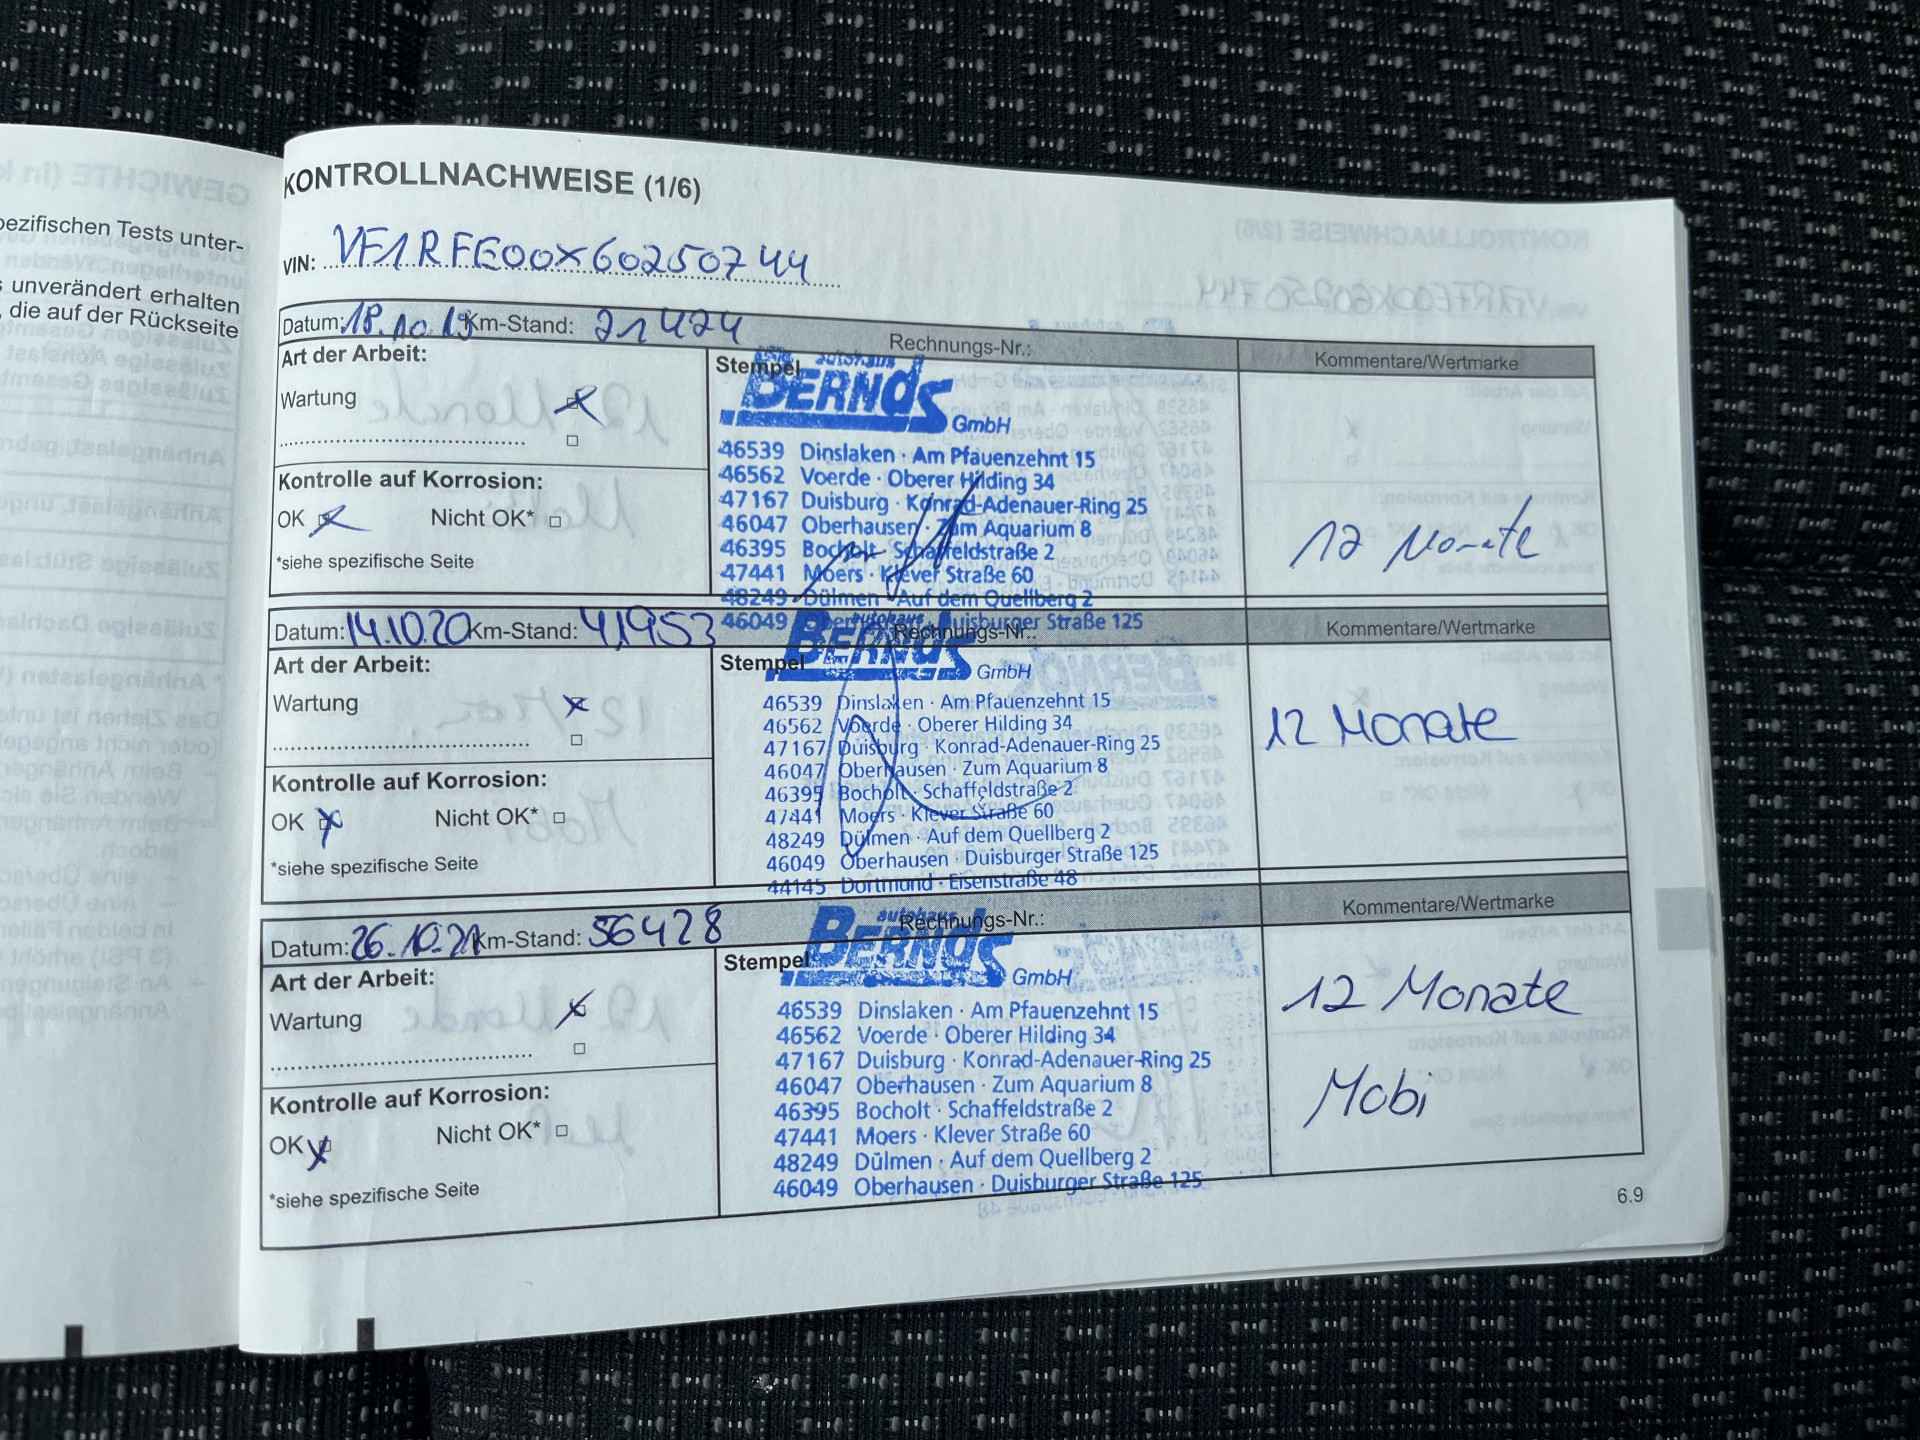 pezifischen Tests unter-
s unverändert erhalten
, die auf der Rückseite
KONTROLLNACHWEISE (1/6)
VIN: VF1RFE00X60250744
Datum: 18.10.19 Km-Stand: 21424
Rechnungs-Nr.:
Kommentare/Wertmarke
Art der Arbeit:
Wartung
Kontrolle auf Korrosion:
OK Nicht OK*
*siehe spezifische Seite
Stempel
autohaus
BERNDS
GmbH
46539 Dinslaken · Am Pfauenzehnt 15
46562 Voerde · Oberer Hilding 34
47167 Duisburg · Konrad-Adenauer-Ring 25
46047 Oberhausen · Zum Aquarium 8
46395 Bocholt · Schaffeldstraße 2
47441 Moers · Klever Straße 60
48249 Dülmen · Auf dem Quellberg 2
46049 Oberhausen · Duisburger Straße 125
12 Monate
Datum: 14.10.20 Km-Stand: 41953
Rechnungs-Nr.:
Kommentare/Wertmarke
Art der Arbeit:
Wartung
Kontrolle auf Korrosion:
OK Nicht OK*
*siehe spezifische Seite
Stempel
autohaus
BERNDS
GmbH
46539 Dinslaken · Am Pfauenzehnt 15
46562 Voerde · Oberer Hilding 34
47167 Duisburg · Konrad-Adenauer-Ring 25
46047 Oberhausen · Zum Aquarium 8
46395 Bocholt · Schaffeldstraße 2
47441 Moers · Klever Straße 60
48249 Dülmen · Auf dem Quellberg 2
46049 Oberhausen · Duisburger Straße 125
44145 Dortmund · Eisenstraße 48
12 Monate
Datum: 26.10.21 Km-Stand: 56428
Rechnungs-Nr.:
Kommentare/Wertmarke
Art der Arbeit:
Wartung
Kontrolle auf Korrosion:
OK Nicht OK*
*siehe spezifische Seite
Stempel
autohaus
BERNDS
GmbH
46539 Dinslaken · Am Pfauenzehnt 15
46562 Voerde · Oberer Hilding 34
47167 Duisburg · Konrad-Adenauer-Ring 25
46047 Oberhausen · Zum Aquarium 8
46395 Bocholt · Schaffeldstraße 2
47441 Moers · Klever Straße 60
48249 Dülmen · Auf dem Quellberg 2
46049 Oberhausen · Duisburger Straße 125
12 Monate
Mobi
6.9